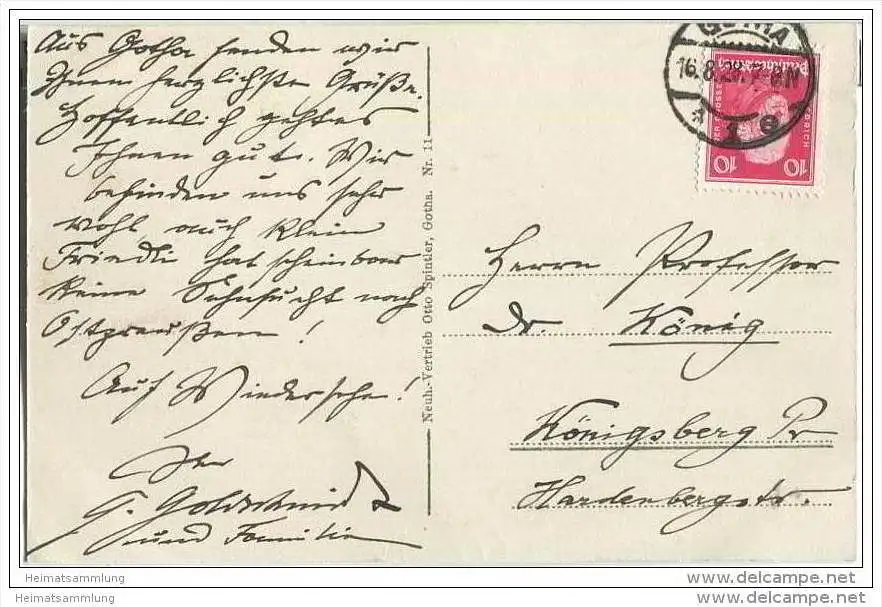 Aus Gotha senden wir
Ihnen herzlichste Grüße.
Hoffentlich geht es
Ihnen gut. Wir
befinden uns sehr
wohl, auch klein
Friedli hat scheinbar
keine Sehnsucht nach
Ostpreußen!
Auf Wiedersehn!
Ihr
G. Goldschmidt
und Familie
Neuh.-Vertrieb Otto Spintler, Gotha. Nr. 11
GOTHA
16.8.28. 7-8 N
* 1 e
10 10
Herrn Professor
Dr. König
Königsberg Pr
Hardenbergstr.
Heimatsammlung
Heimatsammlung
www.delcampe.net
www.delcampe.net